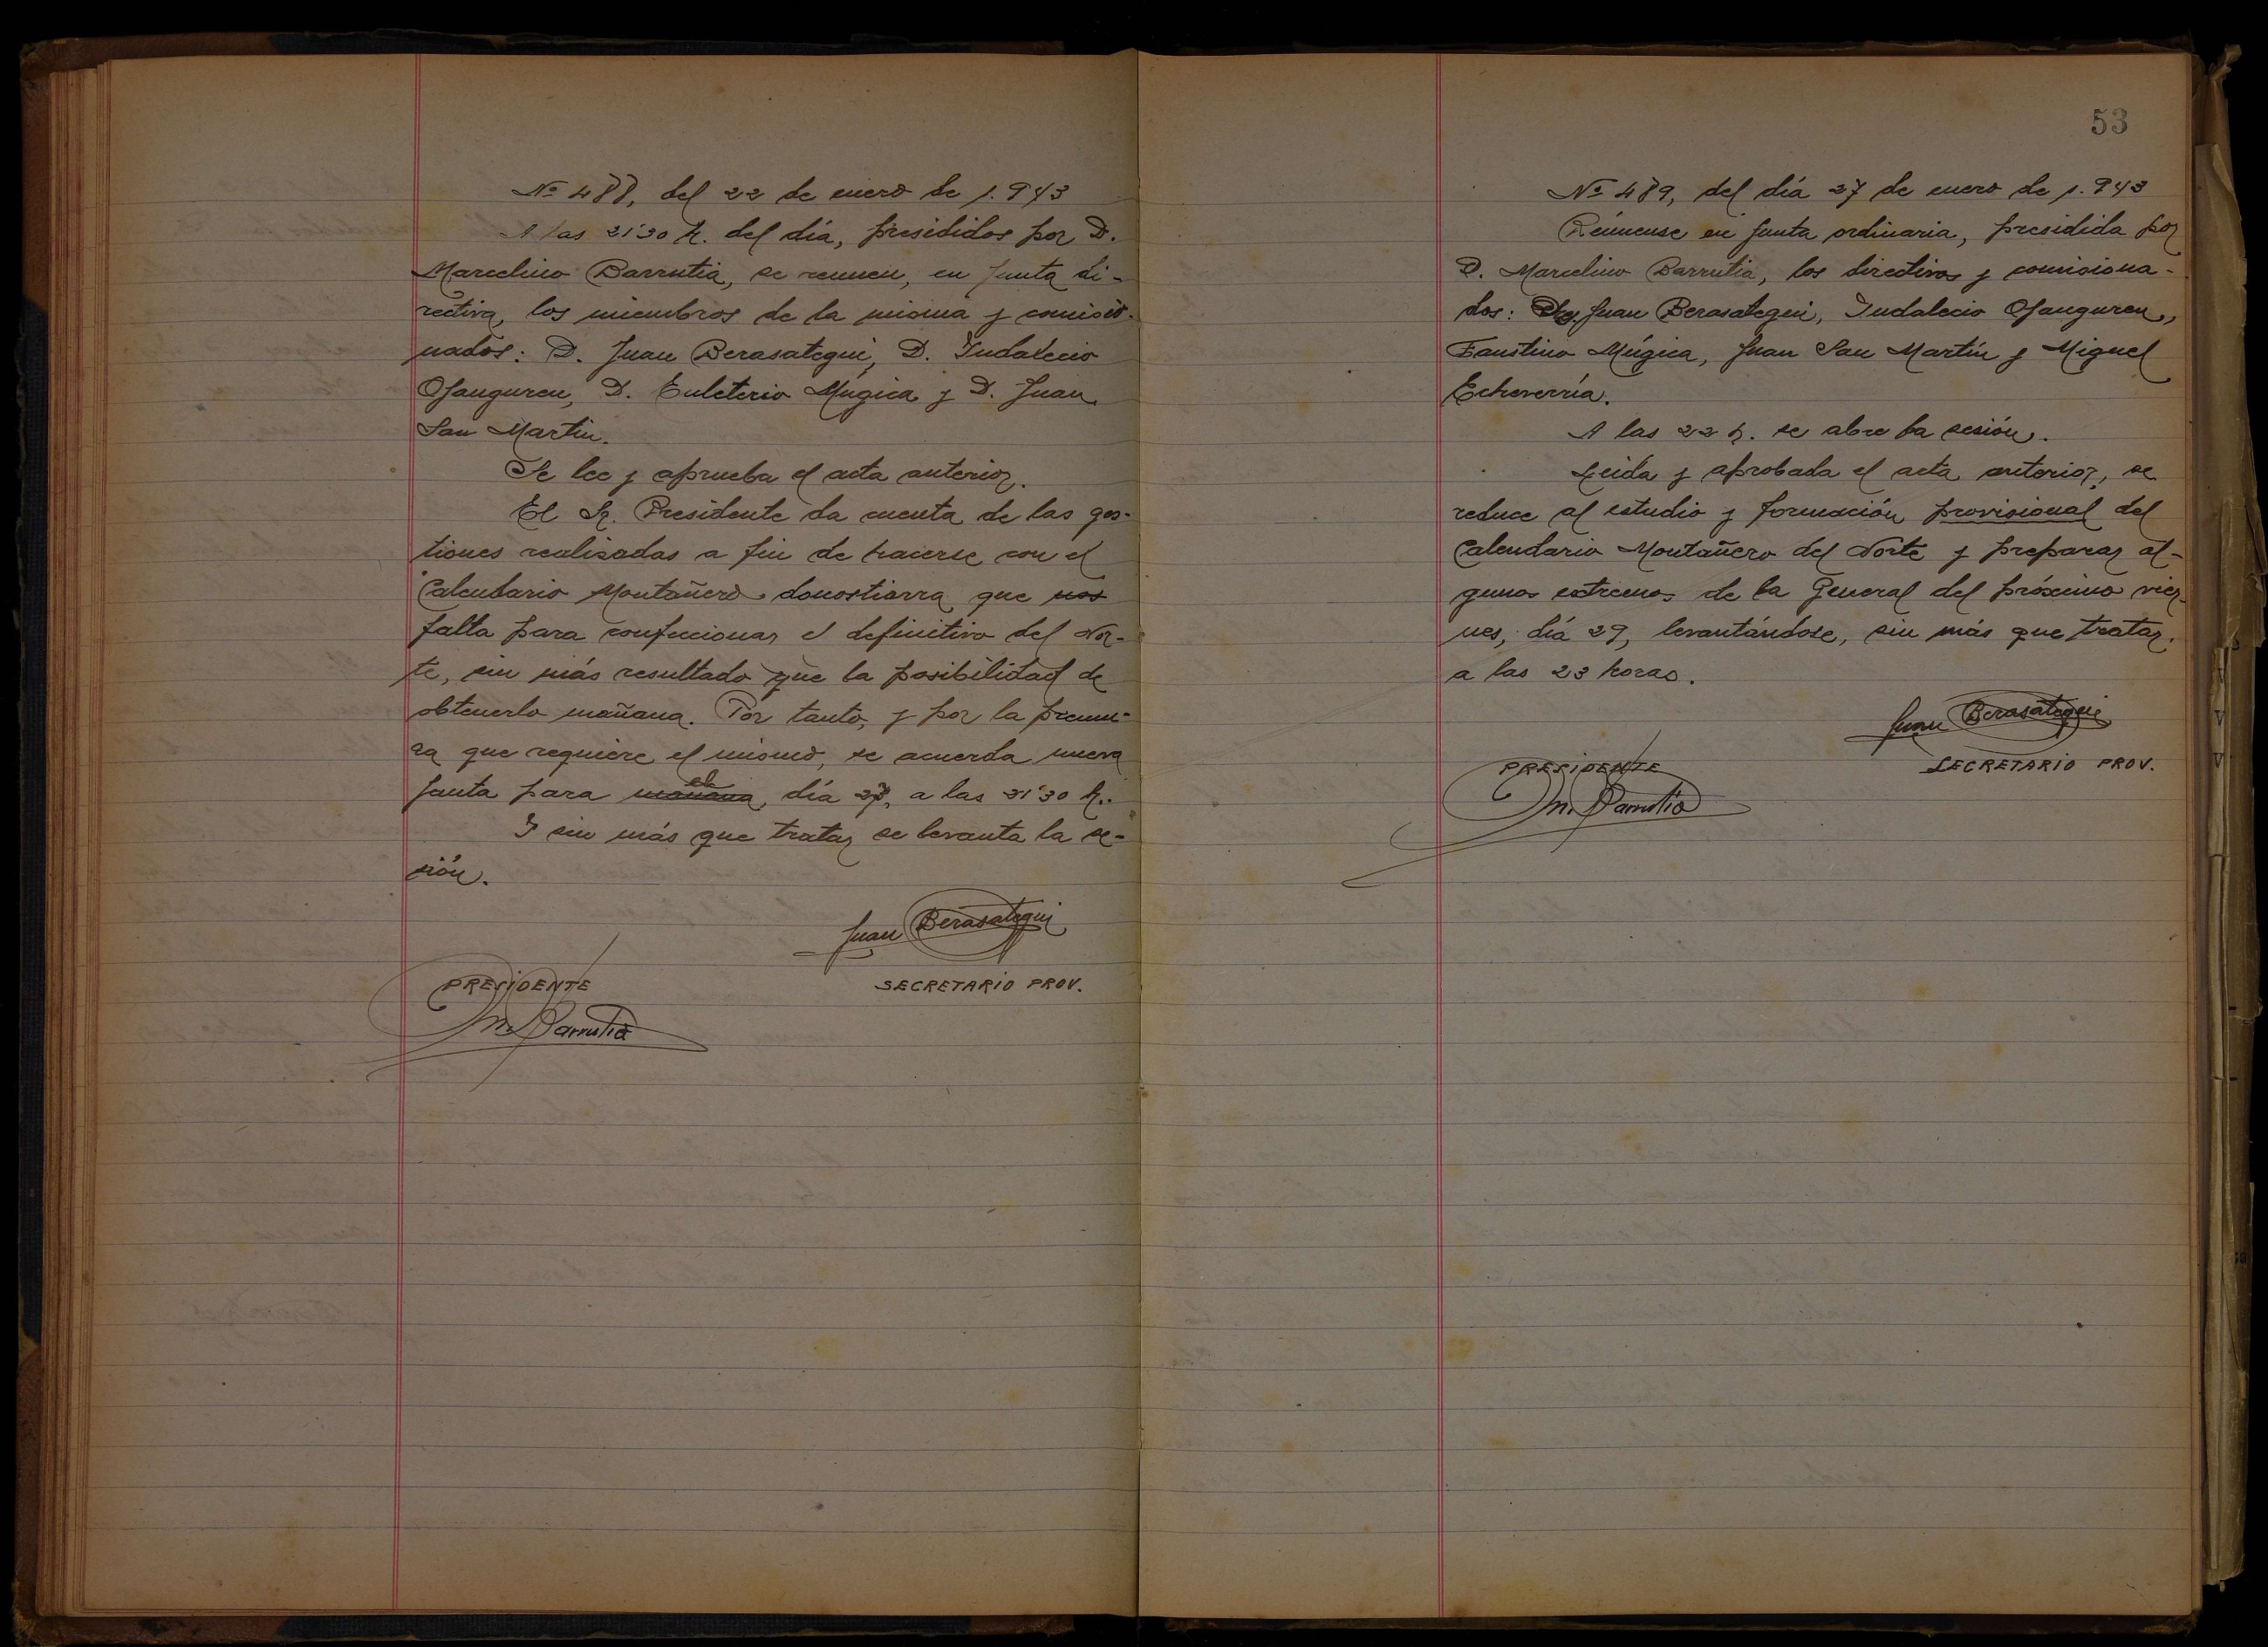 Nº 488, del 22 de enero de 1.943
A las 21'30 h. del día, presididos por D.
Marcelino Barrutia, se reunen, en Junta di-
rectiva, los miembros de la misma y comisio-
nados: D. Juan Berasategui, D. Indalecio
Ojanguren, D. Euleterio Mugica y D. Juan
San Martin.
Se lee y aprueba el acta anterior.
El Sr. Presidente da cuenta de las ges-
tiones realizadas a fin de hacerse con el
Calendario Montañero donostiarra que nos
falta para confeccionar el definitivo del Nor-
te, sin más resultado que la posibilidad de
obtenerlo mañana. Por tanto, y por la premu-
ra que requiere el mismo, se acuerda nueva
el
Junta para mañana, día 27, a las 21'30 h.
Y sin más que tratar se levanta la se-
sión.
Juan Berasategui
PRESIDENTE
SECRETARIO PROV.
M. Barrutia
53
Nº 489, del día 27 de enero de 1.943
Reúnense en Junta ordinaria, presidida por
D. Marcelino Barrutia, los directivos y comisiona-
dos: Juan Berasategui, Indalecio Ojanguren,
Faustino Múgica, Juan San Martín y Miguel
Echeverría.
A las 22 h. se abre la sesión.
Leida y aprobada el acta anterior, se
reduce al estudio y formación provisional del
Calendario Montañero del Norte y preparar al-
gunos extremos de la General del próximo vier-
nes, día 29, levantándose, sin más que tratar,
a las 23 horas.
Juan Berasategui
PRESIDENTE
SECRETARIO PROV.
M. Barrutia